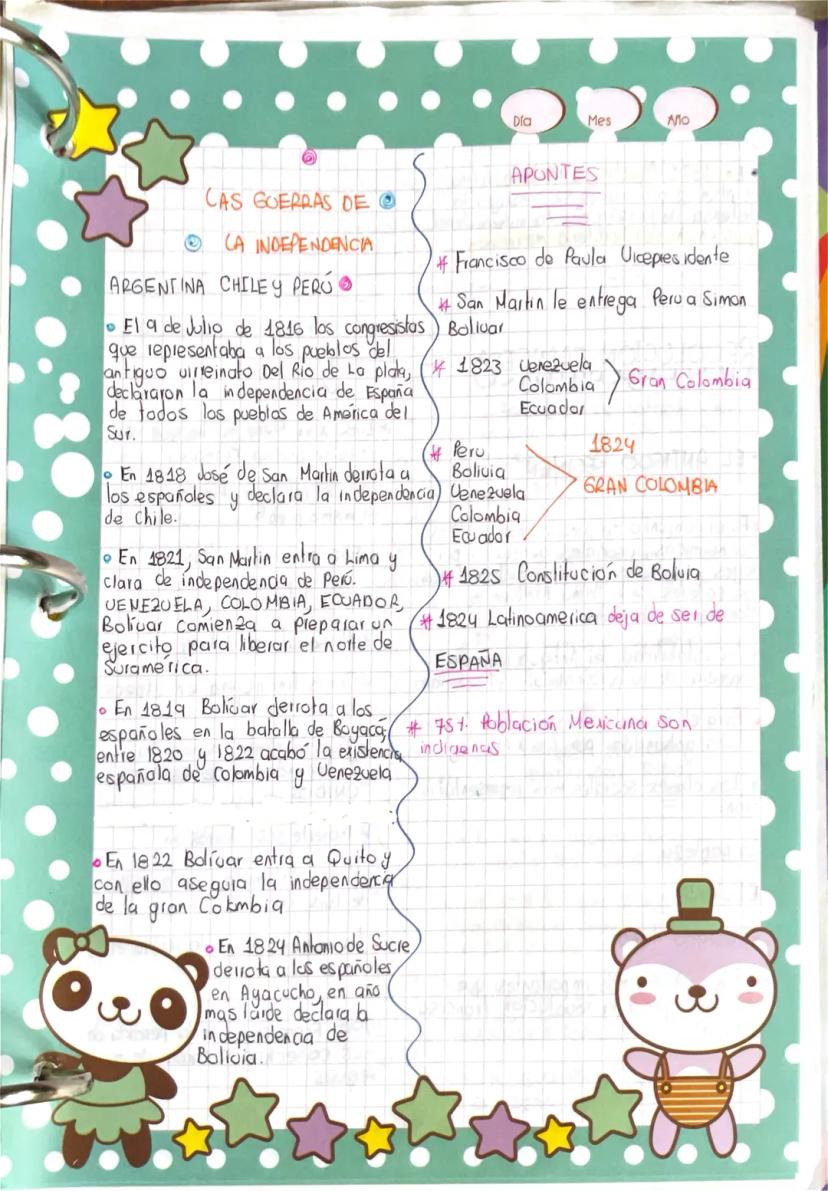 Día Mes Año
LAS GUERRAS DE
LA INDEPENDENCIA
ARGENTINA CHILE y PERÚ
El 9 de Julio de 1816 los congresistas
que representaba a los pueblos del
antiguo virreinato Del Rio de La plata,
declararon la independencia de España
de todos los pueblos de América del
Sur.
En 1818 José de San Martin derrota a
los españoles y declara la independencia
de Chile.
En 1821, San Martin entra a Lima y
clara de independencia de Perú.
VENEZUELA, COLOMBIA, ECUADOR,
Bolívar comienza a preparar un
ejercito para liberar el norte de
Suramerica.
En 1819 Bolívar derrota a los
españoles en la batalla de Boyacá,
entre 1820 y 1822 acabó la existencia
española de Colombia y Venezuela
En 1822 Bolívar entra a Quito y
con ello asegura la independencia
de la gran Colombia
En 1824 Antonio de Sucre
derrota a los españoles
en Ayacucho, en año
mas tarde declara la
independencia de
Bolivia.
APUNTES
* Francisco de Paula Vicepresidente
* San Martin le entrega Peru a Simon
Bolivar
* 1823 Venezuela
Colombia
Ecuador
Gran Colombia
* Peru
Bolivia
Venezuela
Colombia
Ecuador
1824
GRAN COLOMBIA
* 1825 Constitución de Bolvia
* 1824 Latinoamerica deja de ser de
ESPAÑA
* 75%. Población Mexicana son
indigenas